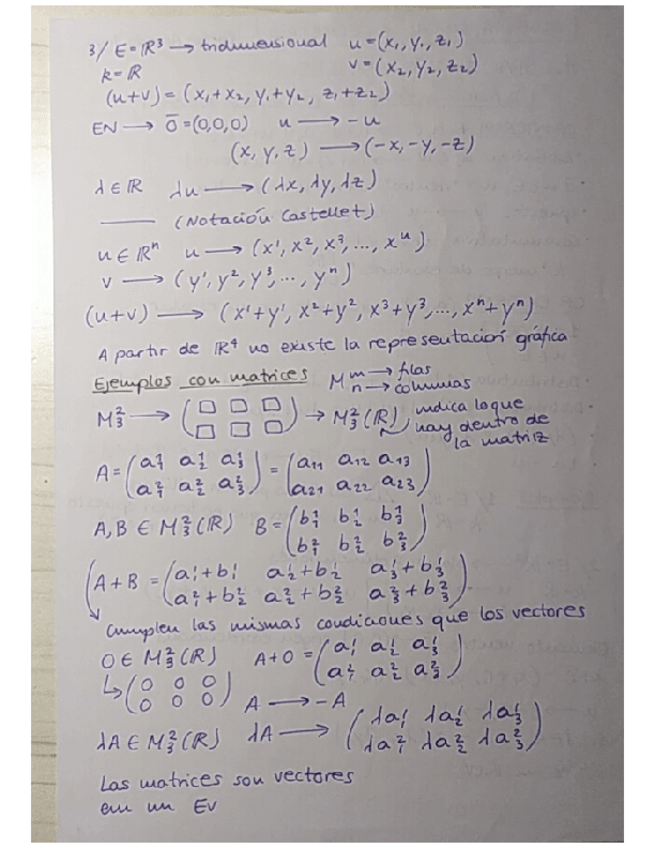 3/ E=ℝ³ → tridimensional u=(x₁, y₁, z₁)
k=ℝ v=(x₂, y₂, z₂)
(u+v)=(x₁+x₂, y₁+y₂, z₁+z₂)
EN → 0̄=(0,0,0) u → -u
(x, y, z) → (-x, -y, -z)
λ∈ℝ λu → (λx, λy, λz)
—— (Notación Castellet)
u∈ℝⁿ u → (x¹, x², x³, ..., xⁿ)
v → (y¹, y², y³, ..., yⁿ)
(u+v) → (x¹+y¹, x²+y², x³+y³, ..., xⁿ+yⁿ)
A partir de ℝ⁴ no existe la representación gráfica
Ejemplos con matrices M m → filas
n → columnas
M²₃ → (□ □ □ / □ □ □) → M²₃(ℝ) indica lo que
hay dentro de
la matriz
A = (a¹₁ a¹₂ a¹₃ / a²₁ a²₂ a²₃) = (a₁₁ a₁₂ a₁₃ / a₂₁ a₂₂ a₂₃)
A, B ∈ M²₃(ℝ) B = (b¹₁ b¹₂ b¹₃ / b²₁ b²₂ b²₃)
A+B = (a¹₁+b¹₁ a¹₂+b¹₂ a¹₃+b¹₃ / a²₁+b²₂ a²₂+b²₂ a²₃+b²₃)
Cumplen las mismas condiciones que los vectores
0 ∈ M²₃(ℝ) A+0 = (a¹₁ a¹₂ a¹₃ / a²₁ a²₂ a²₃)
↳ (0 0 0 / 0 0 0) A → -A
λA ∈ M²₃(ℝ) λA → (λa¹₁ λa¹₂ λa¹₃ / λa²₁ λa²₂ λa²₃)
Las matrices son vectores
em un EV